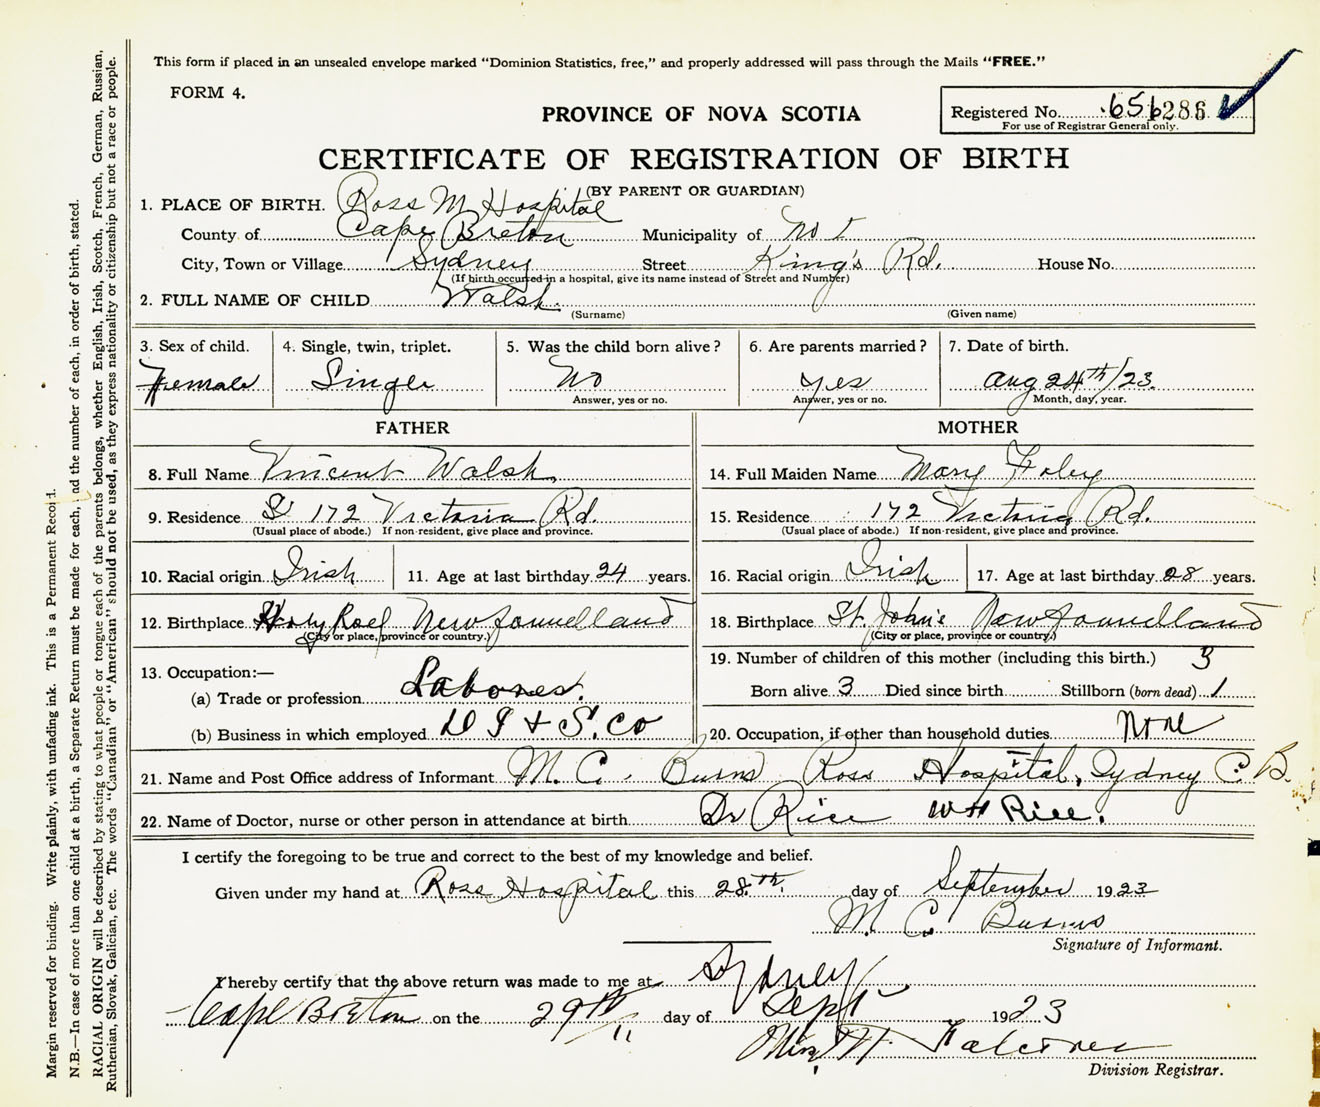 This form if placed in an unsealed envelope marked "Dominion Statistics, free," and properly addressed will pass through the Mails "FREE."
FORM 4.
PROVINCE OF NOVA SCOTIA
Registered No. 656286
For use of Registrar General only.
CERTIFICATE OF REGISTRATION OF BIRTH
(BY PARENT OR GUARDIAN)
1. PLACE OF BIRTH. Ross M Hospital
County of Cape Breton Municipality of No 1
City, Town or Village Sydney Street King's Rd. House No.
(If birth occurred in a hospital, give its name instead of Street and Number)
2. FULL NAME OF CHILD Walsh
(Surname) (Given name)
3. Sex of child. 4. Single, twin, triplet. 5. Was the child born alive? 6. Are parents married? 7. Date of birth.
Female Single No yes Aug 24th/23.
Answer, yes or no. Answer, yes or no. Month, day, year.
FATHER MOTHER
8. Full Name Vincent Walsh 14. Full Maiden Name Mary Foley
9. Residence 172 Victoria Rd. 15. Residence 172 Victoria Rd.
(Usual place of abode.) If non-resident, give place and province. (Usual place of abode.) If non-resident, give place and province.
10. Racial origin Irish 11. Age at last birthday 24 years. 16. Racial origin Irish 17. Age at last birthday 28 years.
12. Birthplace Newfoundland 18. Birthplace St. John's Newfoundland
(City or place, province or country.) (City or place, province or country.)
13. Occupation:— 19. Number of children of this mother (including this birth.) 3
(a) Trade or profession Laborer. Born alive 3 Died since birth Stillborn (born dead) 1
(b) Business in which employed D I & S. Co 20. Occupation, if other than household duties None
21. Name and Post Office address of Informant M. C. Burns Ross Hospital, Sydney C. B.
22. Name of Doctor, nurse or other person in attendance at birth Dr Rice WH Rice.
I certify the foregoing to be true and correct to the best of my knowledge and belief.
Given under my hand at Ross Hospital this 28th day of September 1923
M. C. Burns
Signature of Informant.
I hereby certify that the above return was made to me at Sydney
Cape Breton on the 29th day of Sept 1923
Division Registrar.
Margin reserved for binding. Write plainly, with unfading ink. This is a Permanent Record.
N.B.—In case of more than one child at a birth, a Separate Return must be made for each, and the number of each, in order of birth, stated.
RACIAL ORIGIN will be described by stating to what people or tongue each of the parents belongs, whether English, Irish, Scotch, French, German, Russian,
Ruthenian, Slovak, Galician, etc. The words "Canadian" or "American" should not be used, as they express nationality or citizenship but not a race or people.